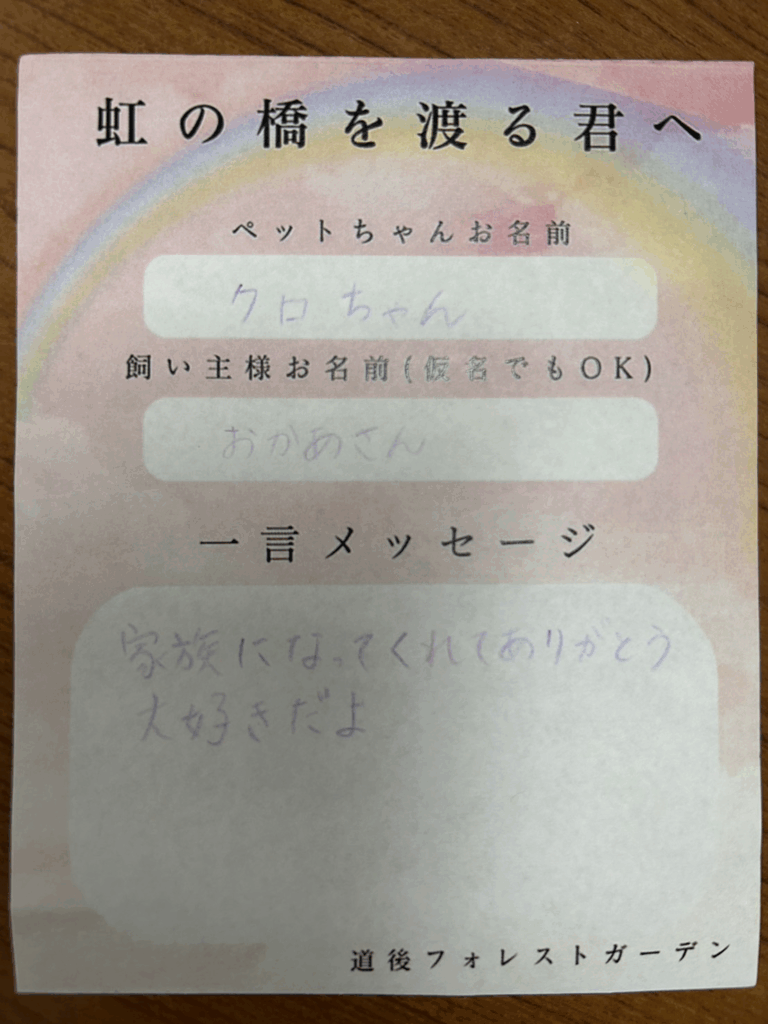 虹の橋を渡る君へ
ペットちゃんお名前
クロちゃん
飼い主様お名前(仮名でもOK)
おかあさん
一言メッセージ
家族になってくれてありがとう
大好きだよ
道後フォレストガーデン